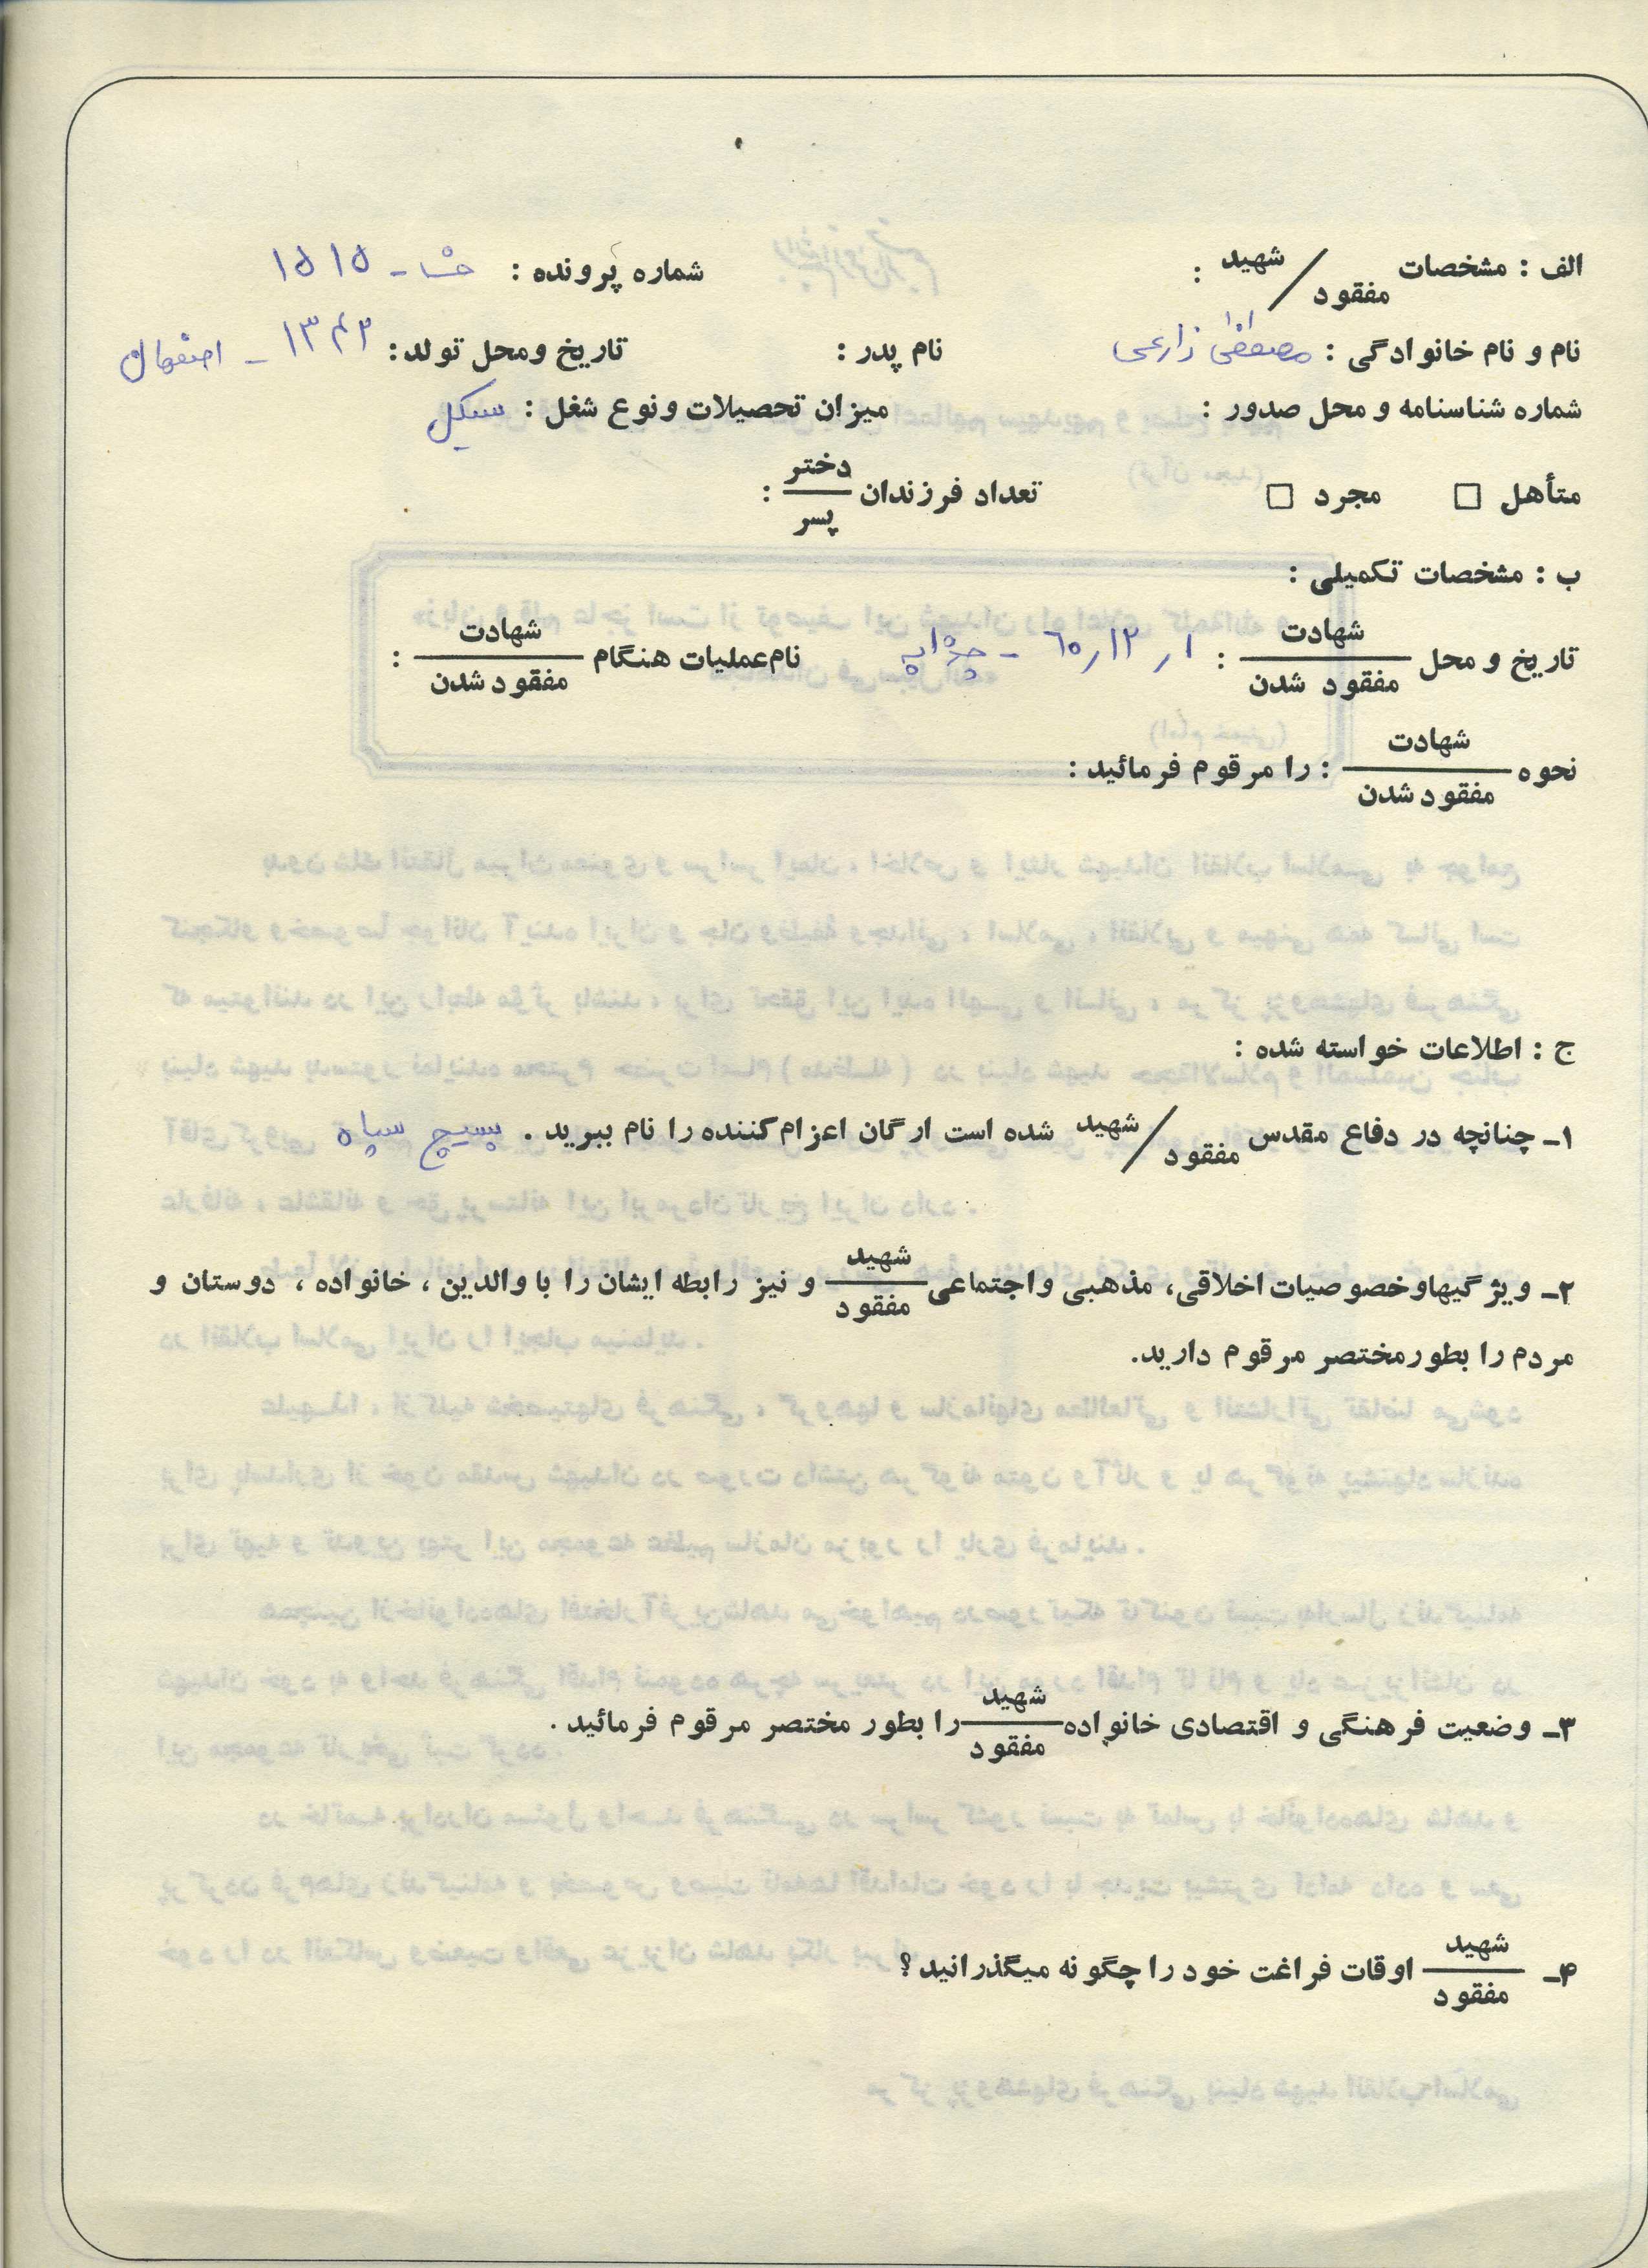 الف : مشخصات شهید / مفقود : شماره پرونده : ۱۵۱۵
نام و نام خانوادگی : مصطفی زارعی نام پدر : تاریخ ومحل تولد : ۱۳۴۲ - اصفهان
شماره شناسنامه و محل صدور : میزان تحصیلات ونوع شغل : سیکل
متأهل □ مجرد □ تعداد فرزندان دختر / پسر :
ب : مشخصات تکمیلی :
تاریخ و محل شهادت / مفقود شدن : ۶۰٫۱۲٫۱ - چزابه نام عملیات هنگام شهادت / مفقود شدن :
نحوه شهادت / مفقود شدن : را مرقوم فرمائید :
ج : اطلاعات خواسته شده :
۱ـ چنانچه در دفاع مقدس شهید / مفقود شده است ارگان اعزام کننده را نام ببرید . بسیج سپاه
۲ـ ویژگیهاوخصوصیات اخلاقی، مذهبی واجتماعی شهید / مفقود و نیز رابطه ایشان را با والدین ، خانواده ، دوستان و
مردم را بطورمختصر مرقوم دارید.
۳ـ وضعیت فرهنگی و اقتصادی خانواده شهید / مفقود را بطور مختصر مرقوم فرمائید .
۴ـ شهید / مفقود اوقات فراغت خود را چگونه میگذرانید؟